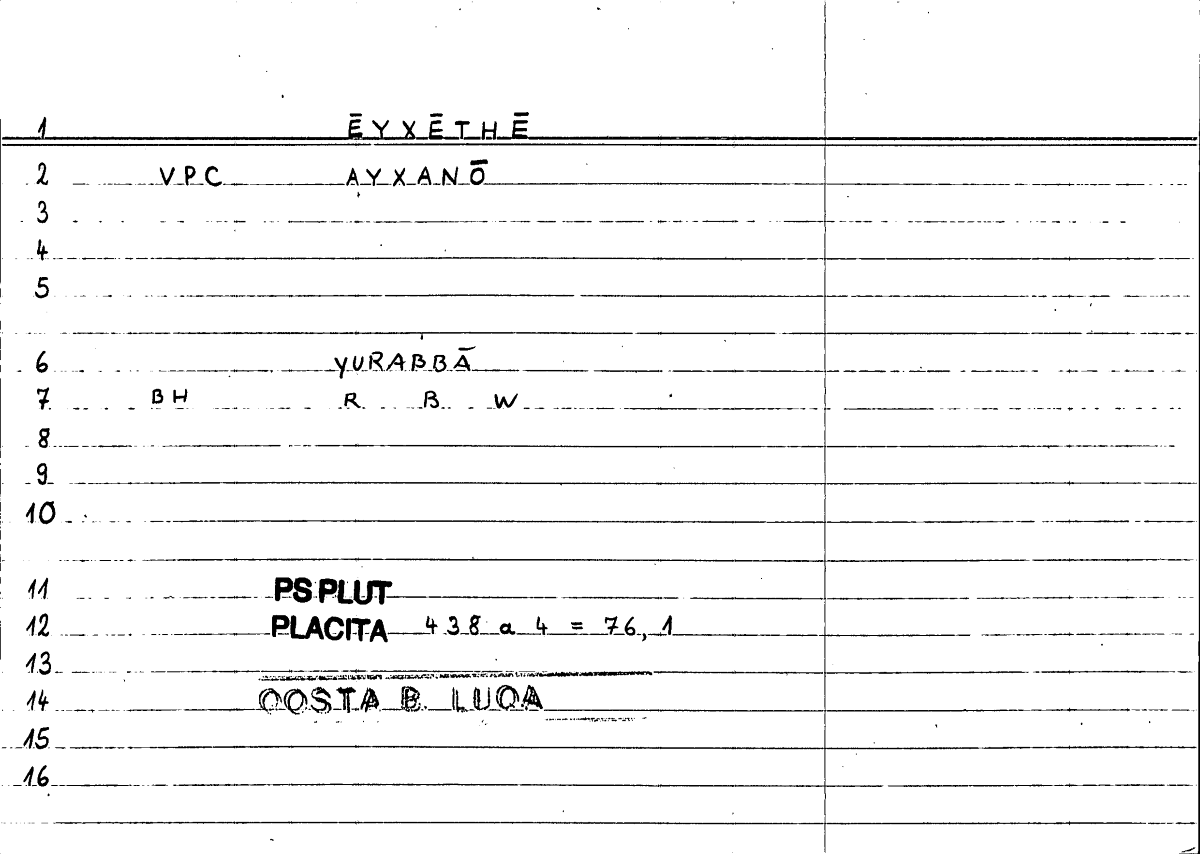 1 ĒYXĒTHĒ
2 VPC AYXANŌ
3
4
5
6 YURABBĀ
7 BH R B W
8
9
10
11 PS PLUT
12 PLACITA 438 a 4 = 76, 1
13
14 QOSTA B. LUQA
15
16